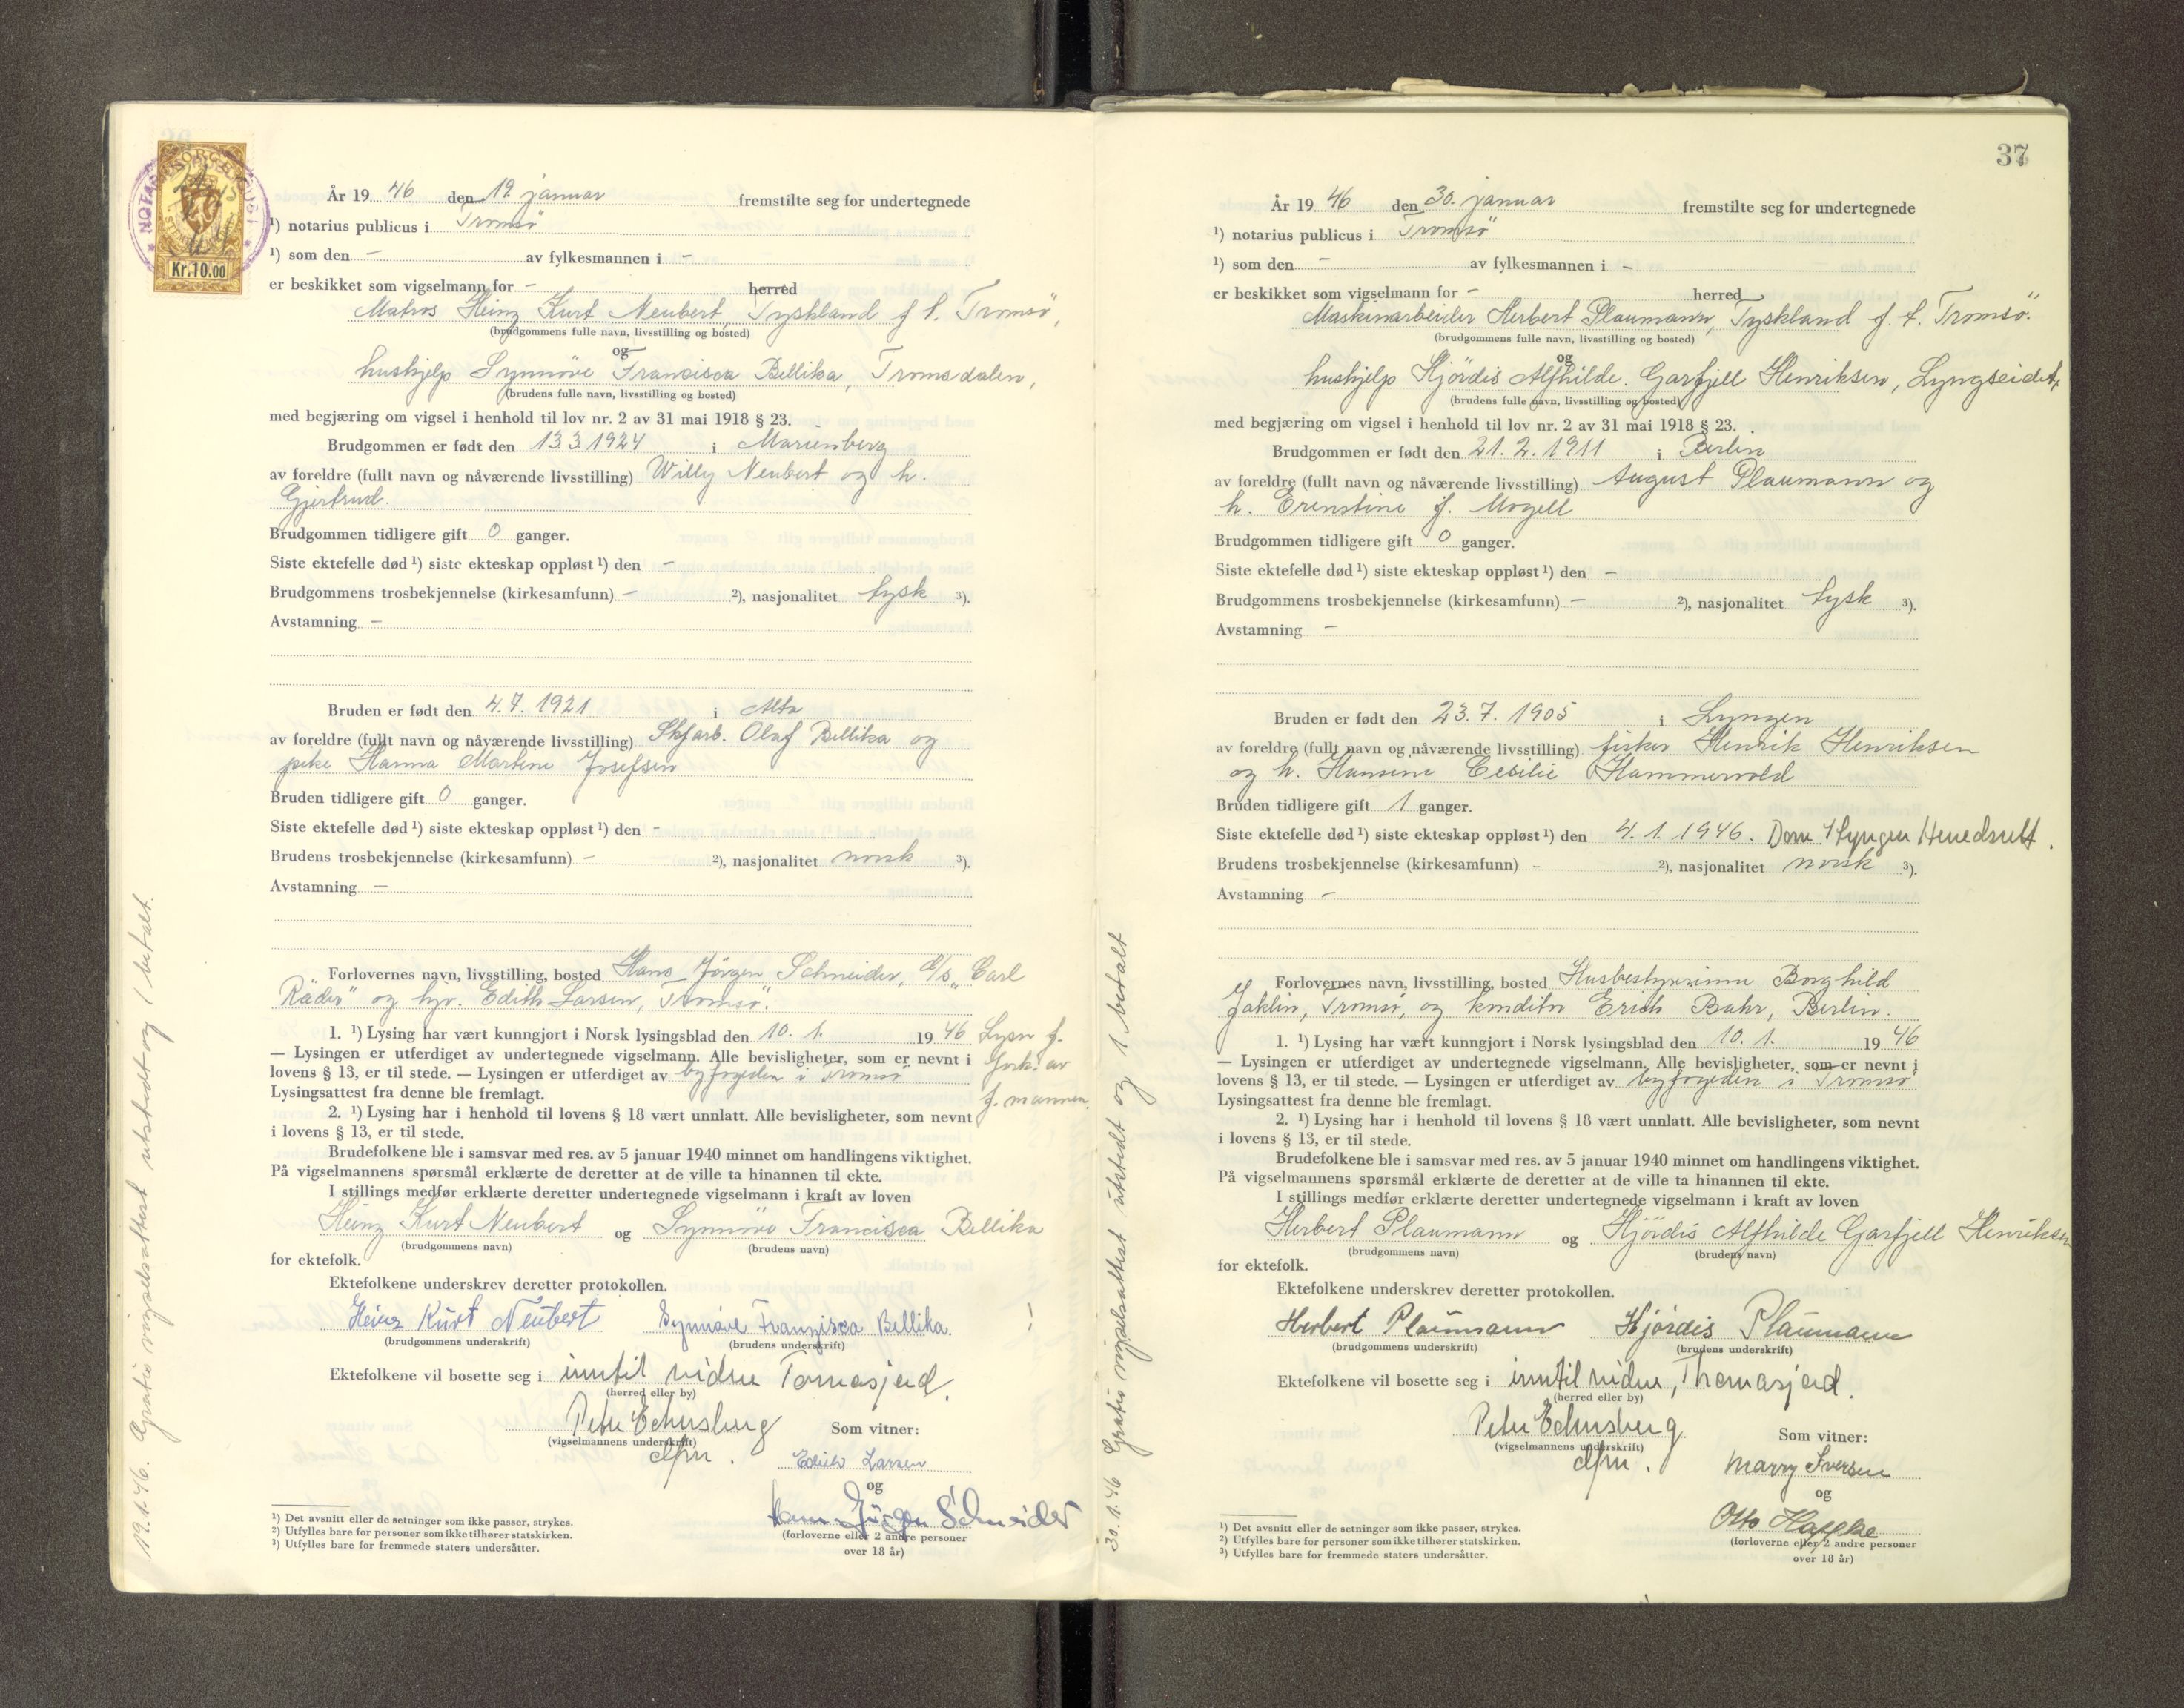 År 19 46 den 19. januar fremstilte seg for undertegnede
¹) notarius publicus i Tromsö
¹) som den – av fylkesmannen i –
er beskikket som vigselmann for – herred
Kr.10.00
Matros Heinz Kurt Neubert, Tyskland f. t. Tromsö,
(brudgommens fulle navn, livsstilling og bosted)
og
hushjelp Synnöve Francisca Bellika, Tromsdalen,
(brudens fulle navn, livsstilling og bosted)
med begjæring om vigsel i henhold til lov nr. 2 av 31 mai 1918 § 23.
Brudgommen er født den 13 3 1924 i Marienberg
av foreldre (fullt navn og nåværende livsstilling) Willy Neubert og h.
Gjertrud.
Brudgommen tidligere gift 0 ganger.
Siste ektefelle død ¹) siste ekteskap oppløst ¹) den –
Brudgommens trosbekjennelse (kirkesamfunn) – ²), nasjonalitet tysk ³).
Avstamning –
Bruden er født den 4.7. 1921 i Alta
av foreldre (fullt navn og nåværende livsstilling) Skfarb. Olaf Bellika og
pike Hanna Martine Josefsen
Bruden tidligere gift 0 ganger.
Siste ektefelle død ¹) siste ekteskap oppløst ¹) den –
Brudens trosbekjennelse (kirkesamfunn) – ²), nasjonalitet norsk ³).
Avstamning –
Forlovernes navn, livsstilling, bosted Hans Jörgen Schneider, D/s „Carl
Räder" og hfr. Edith Larsen, Tromsö.
1. ¹) Lysing har vært kunngjort i Norsk lysingsblad den 10. 1. 19 46 Lysn f.
— Lysingen er utferdiget av undertegnede vigselmann. Alle bevisligheter, som er nevnt i fork. av
lovens § 13, er til stede. — Lysingen er utferdiget av byfogden i Tromsö
Lysingsattest fra denne ble fremlagt. f. mannen.
2. ¹) Lysing har i henhold til lovens § 18 vært unnlatt. Alle bevisligheter, som nevnt
i lovens § 13, er til stede.
Brudefolkene ble i samsvar med res. av 5 januar 1940 minnet om handlingens viktighet.
På vigselmannens spørsmål erklærte de deretter at de ville ta hinannen til ekte.
I stillings medfør erklærte deretter undertegnede vigselmann i kraft av loven
Heinz Kurt Neubert og Synnöve Francisca Bellika
(brudgommens navn) (brudens navn)
for ektefolk.
Ektefolkene underskrev deretter protokollen.
Heinz Kurt Neubert Synnöve Franzisca Bellika. !
(brudgommens underskrift) (brudens underskrift)
Ektefolkene vil bosette seg i inntil videre Tomasjord.
(herred eller by)
Som vitner:
(vigselmannens underskrift)
Edith Larsen
og
Hans-Jürgen Schneider
(forloverne eller 2 andre personer
over 18 år)
¹) Det avsnitt eller de setninger som ikke passer, strykes.
²) Utfylles bare for personer som ikke tilhører statskirken.
³) Utfylles bare for fremmede staters undersåtter.
19.1.46. Gratis vigselsattest utstedt og 1 betalt.
37
År 19 46 den 30. januar fremstilte seg for undertegnede
¹) notarius publicus i Tromsö
¹) som den – av fylkesmannen i –
er beskikket som vigselmann for – herred
Maskinarbeider Herbert Plaumann, Tyskland f. t. Tromsö.
(brudgommens fulle navn, livsstilling og bosted)
og
hushjelp Hjördis Alfhilde. Garfjell Henriksen, Lyngseidet,
(brudens fulle navn, livsstilling og bosted)
med begjæring om vigsel i henhold til lov nr. 2 av 31 mai 1918 § 23.
Brudgommen er født den 21. 2. 1911 i Berlin
av foreldre (fullt navn og nåværende livsstilling) August Plaumann og
h. Erenstine f. Mozell
Brudgommen tidligere gift 0 ganger.
Siste ektefelle død ¹) siste ekteskap oppløst ¹) den –
Brudgommens trosbekjennelse (kirkesamfunn) – ²), nasjonalitet tysk ³).
Avstamning –
Bruden er født den 23. 7. 1905 i Lyngen
av foreldre (fullt navn og nåværende livsstilling) fisker Henrik Henriksen
og h. Hansine Cesilie Hammervold
Bruden tidligere gift 1 ganger.
Siste ektefelle død ¹) siste ekteskap oppløst ¹) den 4. 1. 1946. Dom Lyngen Herredsrett.
Brudens trosbekjennelse (kirkesamfunn) – ²), nasjonalitet norsk ³).
Avstamning –
Forlovernes navn, livsstilling, bosted Husbestyrerinne Borghild
Jaklin, Tromsö, og konditor Erich Bahr, Berlin.
1. ¹) Lysing har vært kunngjort i Norsk lysingsblad den 10. 1. 19 46
— Lysingen er utferdiget av undertegnede vigselmann. Alle bevisligheter, som er nevnt i
lovens § 13, er til stede. — Lysingen er utferdiget av byfogden i Tromsö
Lysingsattest fra denne ble fremlagt.
2. ¹) Lysing har i henhold til lovens § 18 vært unnlatt. Alle bevisligheter, som nevnt
i lovens § 13, er til stede.
Brudefolkene ble i samsvar med res. av 5 januar 1940 minnet om handlingens viktighet.
På vigselmannens spørsmål erklærte de deretter at de ville ta hinannen til ekte.
I stillings medfør erklærte deretter undertegnede vigselmann i kraft av loven
Herbert Plaumann og Hjördis Alfhilde Garfjell Henriksen
(brudgommens navn) (brudens navn)
for ektefolk.
Ektefolkene underskrev deretter protokollen.
Herbert Plaumann Hjördis Plaumann
(brudgommens underskrift) (brudens underskrift)
Ektefolkene vil bosette seg i inntil videre, Thomasjord.
(herred eller by)
Som vitner:
(vigselmannens underskrift)
Marry Iversen
og
Otto Haffke
(forloverne eller 2 andre personer
over 18 år)
¹) Det avsnitt eller de setninger som ikke passer, strykes.
²) Utfylles bare for personer som ikke tilhører statskirken.
³) Utfylles bare for fremmede staters undersåtter.
30.1.46 Gratis vigselsattest utstedt og 1 betalt